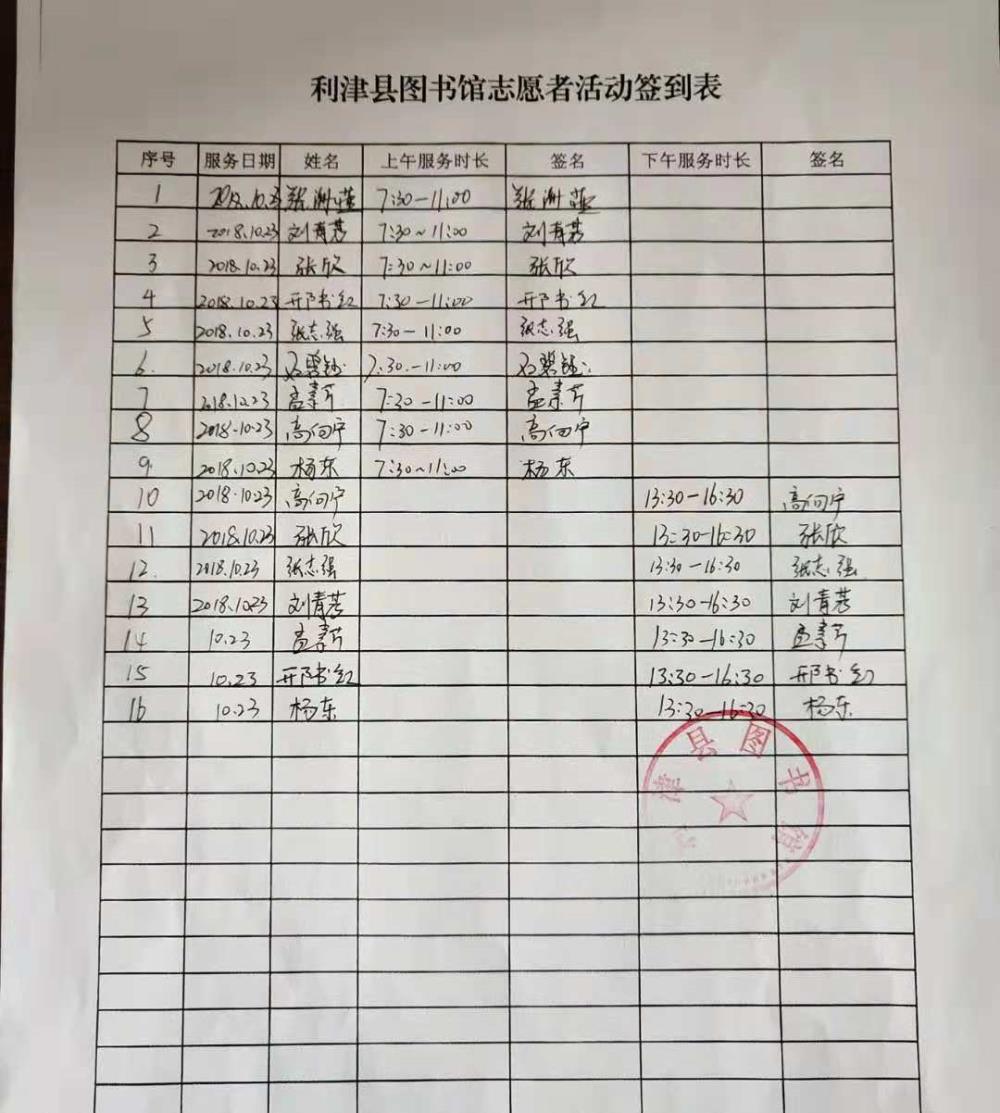 利津县图书馆志愿者活动签到表
序号 服务日期 姓名 上午服务时长 签名 下午服务时长 签名
1 2018.10.23 张 7:30-11:00 张
2 2018.10.23 刘青芸 7:30~11:00 刘青芸
3 2018.10.23 张欣 7:30~11:00 张欣
4 2018.10.23 书红 7:30-11:00 书红
5 2018.10.23 张志强 7:30-11:00 张志强
6. 2018.10.23 7:30.-11:00
7 2018.10.23 孟素芹 7:30-11:00 孟素芹
8 2018.10.23 高向宁 7:30-11:00 高向宁
9. 2018.10.23 杨东 7:30~11:00 杨东
10 2018.10.23 高向宁 13:30-16:30 高向宁
11 2018.10.23 张欣 13:30-16:30 张欣
12. 2018.10.23 张志强 13:30-16:30 张志强
13 2018.10.23 刘青芸 13:30-16:30 刘青芸
14 10.23 孟素芹 13:30-16:30 孟素芹
15 10.23 书红 13:30-16:30 书红
16 10.23 杨东 13:30-16:30 杨东
利津县图书馆